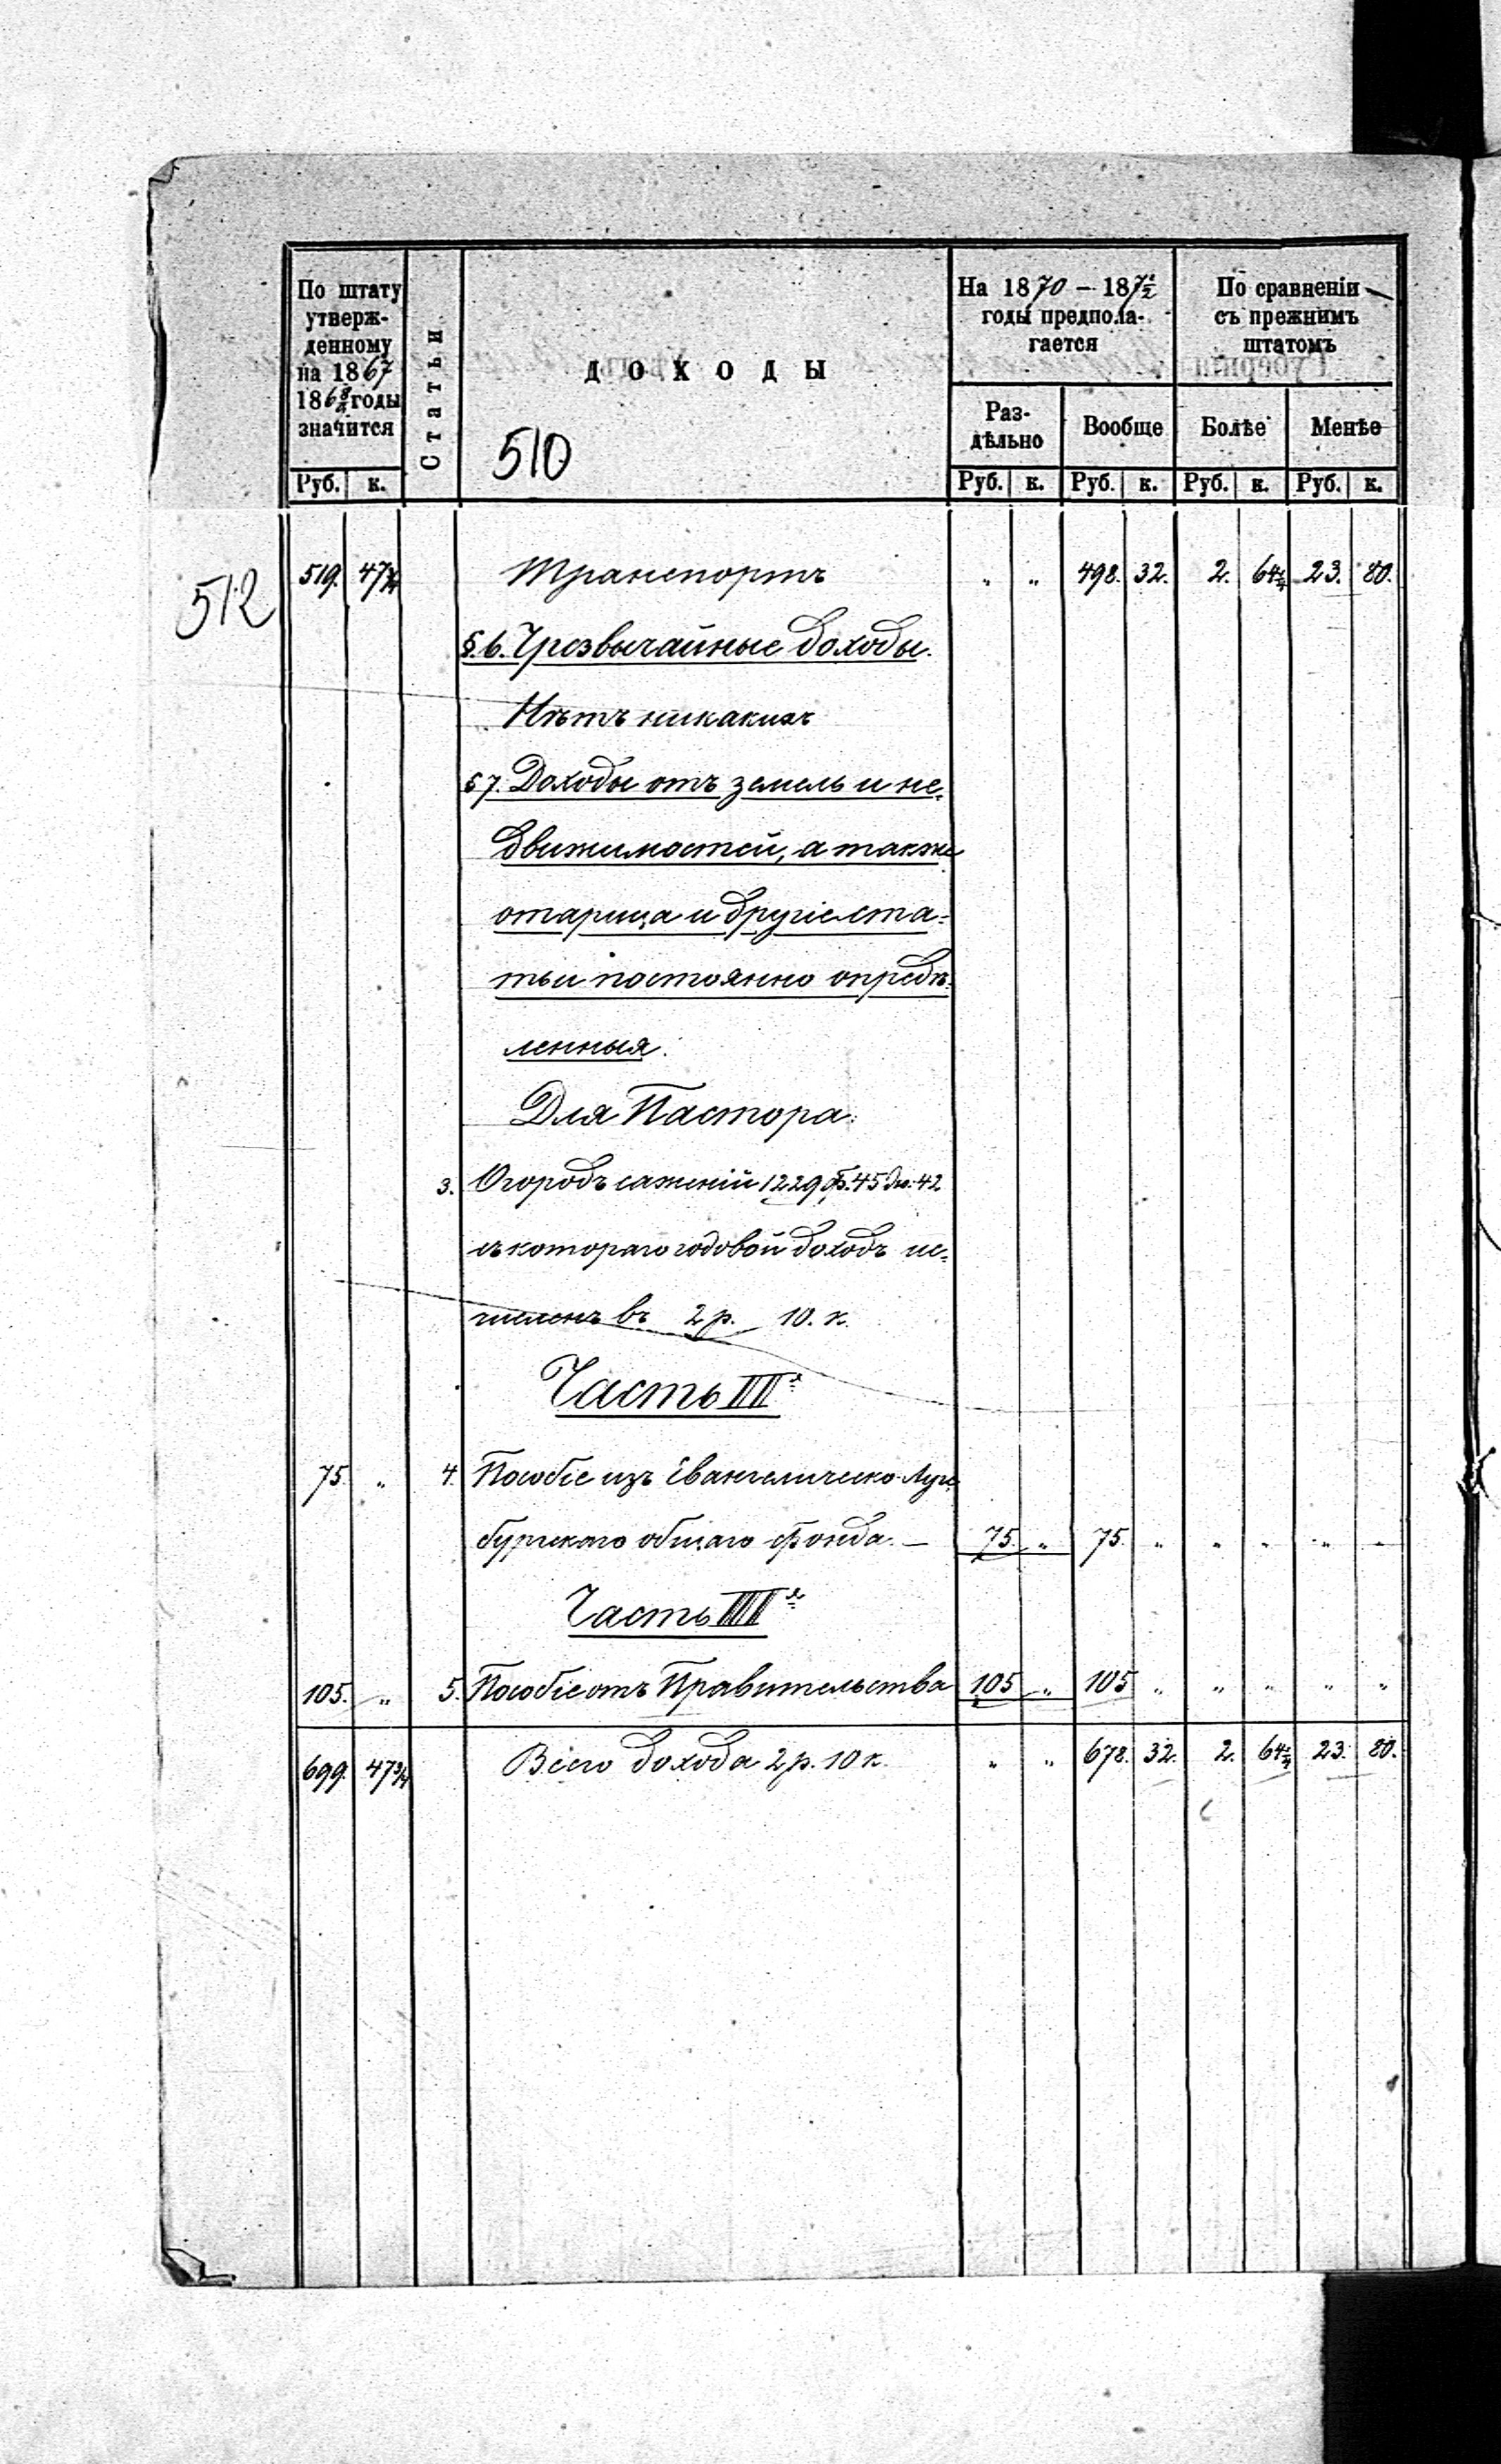 По штату
утверж-
денному
на 1867
186 8/9 годы
значится
Статьи
ДОХОДЫ
510
На 1870 – 187 1/2
годы предпола-
гается
По сравненію
съ прежнимъ
штатомъ
Раз-
дѣльно
Вообще
Болѣе
Менѣе
Руб. к.
Руб. к. Руб. к. Руб. к. Руб. к.
512
519. 47 Транспортъ " " 498. 32. 2. 64 23. 80.
§.6. Чрезвычайные доходы.
Нѣтъ никакихъ
§7. Доходы отъ земель и не-
движимостей, а также
отарица и другіе ста-
тьи постоянно опредѣ-
ленныя.
Для Пастора.
3. Огородъ саженій 1229 ф. 45 дю. 42
съ котораго годовой доходъ ис-
численъ въ 2 р. 10. к.
Часть II я
75 " 4. Пособіе изъ Евангелическо-Аугс
бургскаго общаго фонда. — 75. " 75. " " " " "
Часть III я
105. " 5. Пособіе отъ Правительства 105 " 105 " " " " "
699. 47 3/4 Всего дохода 2 р. 10 к. " " 678. 32. 2. 64 23. 80.